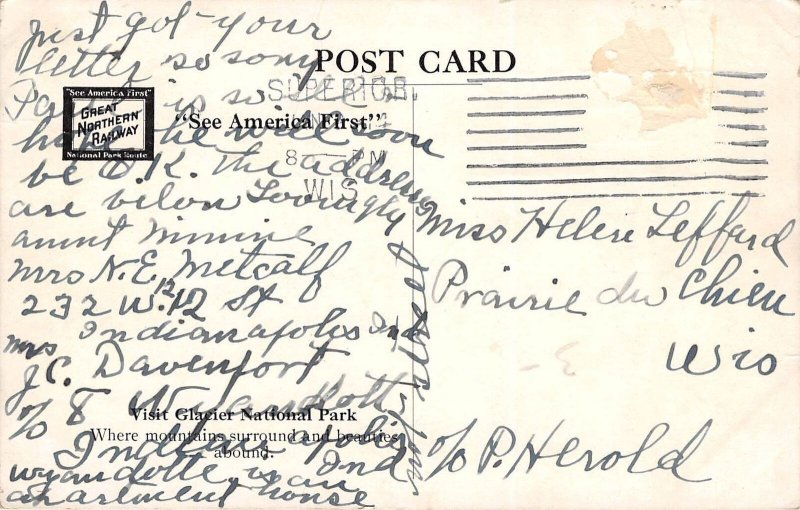 Just got your
letter so sorry
is so
hope he will soon
be O.K. the address
are below Lovingly
aunt Minnie
Mrs N. E. Metcalf
232 W. 12 St
12
Indianapolis Ind
Mrs
J. C. Davenport
% 8 Wyandott
Indianapolis
Ind
wyandotte is an
apartment house
POST CARD
"See America First"
GREAT
NORTHERN
RAILWAY
National Park Route
"See America First"
SUPERIOR,
WIS
Visit Glacier National Park
Where mountains surround and beauties
abound.
Miss Helen Leffard
Prairie du Chien
Wis
% P. Herold